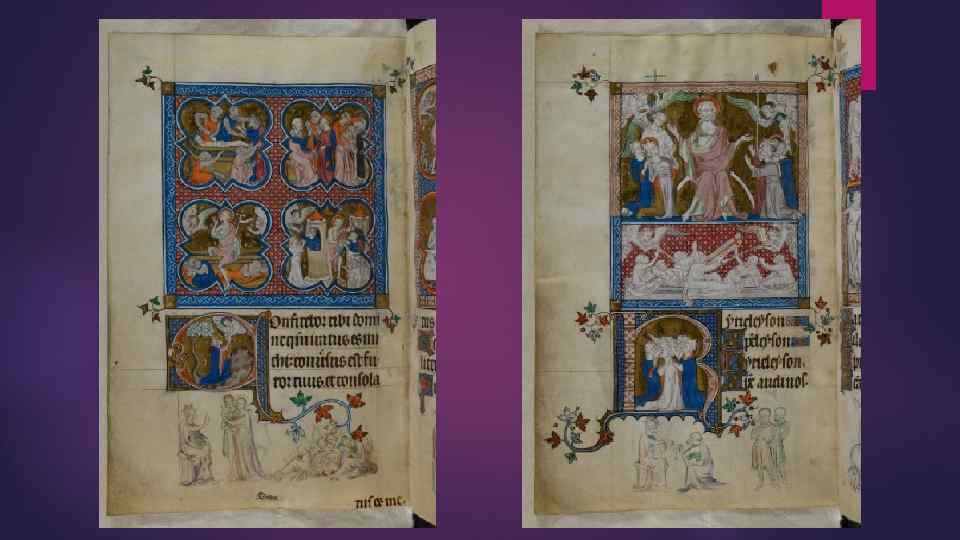 Confitebor tibi domi
ne qm iratus es mi
chi: conuersus est fu
ror tuus. et consola
tus es me.
Kyrieleyson
Xpeleyson
Kyrieleyson.
Xpe audi nos.